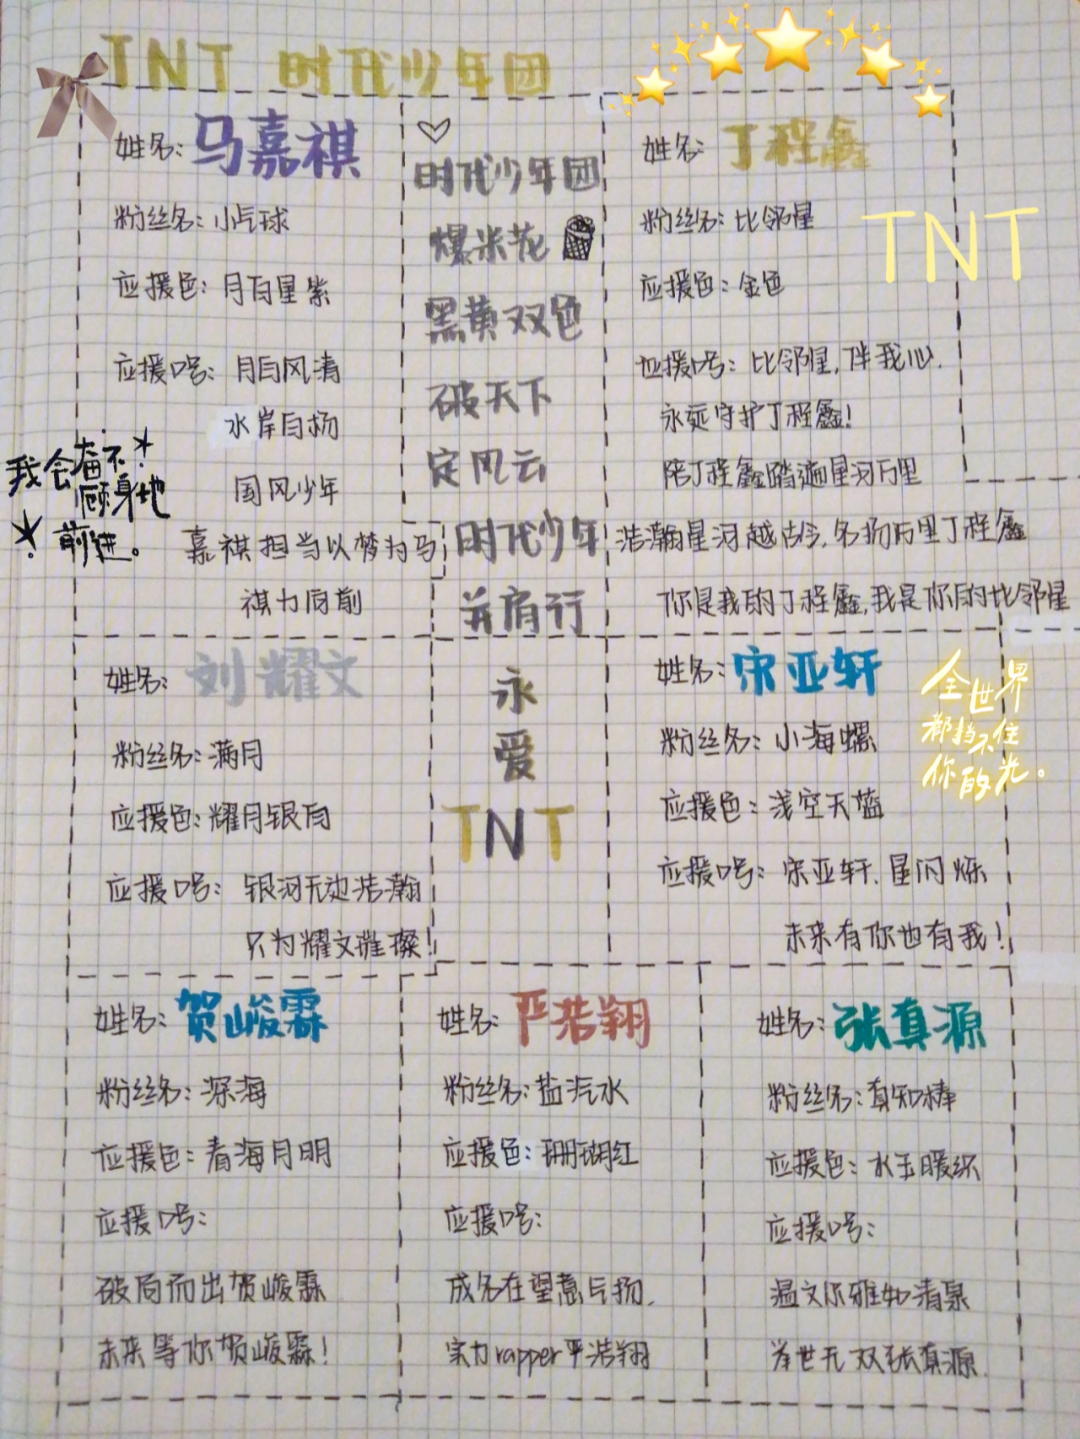 TNT 时代少年团
姓名：马嘉祺
粉丝名：小气球
应援色：月白星紫
应援口号：月白风清
水岸自扬
国风少年
嘉祺担当以梦为马
祺力向前
我会奋不
顾身地
前进。
♡
时代少年团
爆米花
黑黄双色
破天下
定风云
时代少年
并肩行
永
爱
TNT
姓名：丁程鑫
粉丝名：比邻星
TNT
应援色：金色
应援口号：比邻星，伴我心.
永远守护丁程鑫！
陪丁程鑫踏遍星河万里
浩瀚星河越古今，名扬万里丁程鑫
你是我的丁程鑫，我是你的比邻星
姓名：刘耀文
粉丝名：满月
应援色：耀月银白
应援口号：银河无边浩瀚
只为耀文璀璨！
姓名：宋亚轩
粉丝名：小海螺
应援色：浅空天蓝
应援口号：宋亚轩、星闪烁
未来有你也有我！
全世界
都挡不住
你的光。
姓名：贺峻霖
粉丝名：深海
应援色：看海月明
应援口号：
破局而出贺峻霖
未来等你贺峻霖！
姓名：严浩翔
粉丝名：盐汽水
应援色：珊瑚红
应援口号：
成名在望意气扬，
实力rapper严浩翔
姓名：张真源
粉丝名：真知棒
应援色：水玉暖绿
应援口号：
温文尔雅如清泉
举世无双张真源.